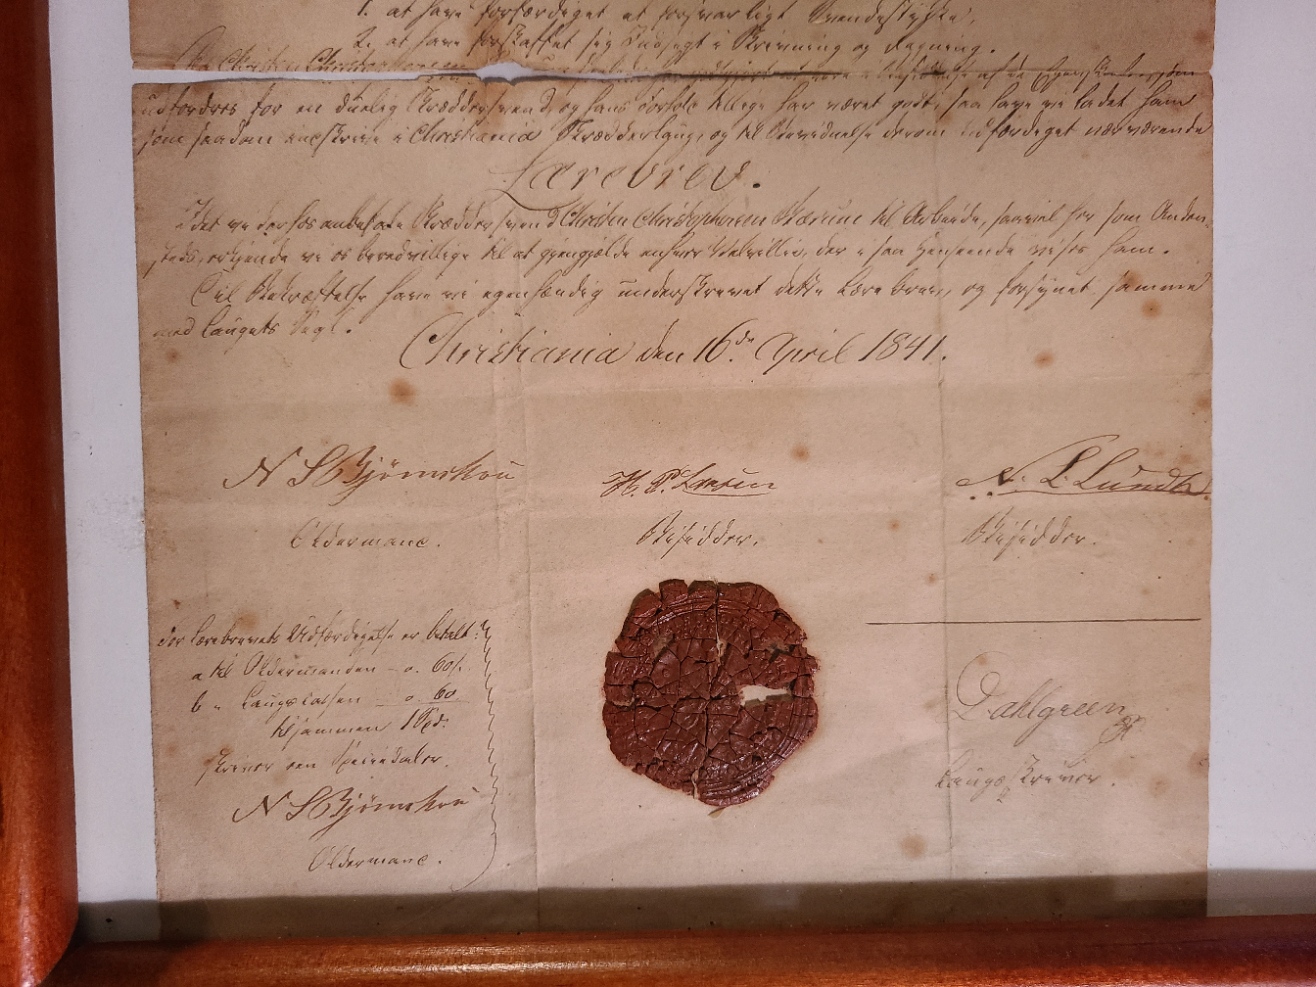 1. at have forfærdiget et forsvarligt Svendestykke,
2. at have forskaffet sig Indsigt i Skrivning og Regning.
Da Christen Christophersen
udfordres for en duelig Skræddersvend, og hans Forhold tillige har været godt; saa have vi ladet ham
som saadan indskrive i Christiania Skrædderlaug, og til Bevidnelse derom udfærdiget nærværende
Lærebrev.
Idet vi derhos anbefale Skræddersvend Christen Christophersen Bærum til Arbeide, saavel her som Anden-
steds, erkjende vi os beredvillige til at gjengjælde enhver Velvillie, der i saa Henseende vises ham.
Til Bekræftelse have vi egenhændig underskrevet dette Lærebrev, og forsynet samme
med Laugets Segl.
Christiania den 16de April 1841.
N S Bjørnskou H. P. Larsen N. L. Lundh
Oldermand. Bisidder. Bisidder.
For Lærebrevets Udfærdigelse er betalt:
a til Oldermanden - a. 60 s.
b " Laugscassen - a. 60
tilsammen 1 Spd.
skriver een Speciedaler.
N S Bjørnskou
Oldermand.
Dahlgreen
Laugsskriver.